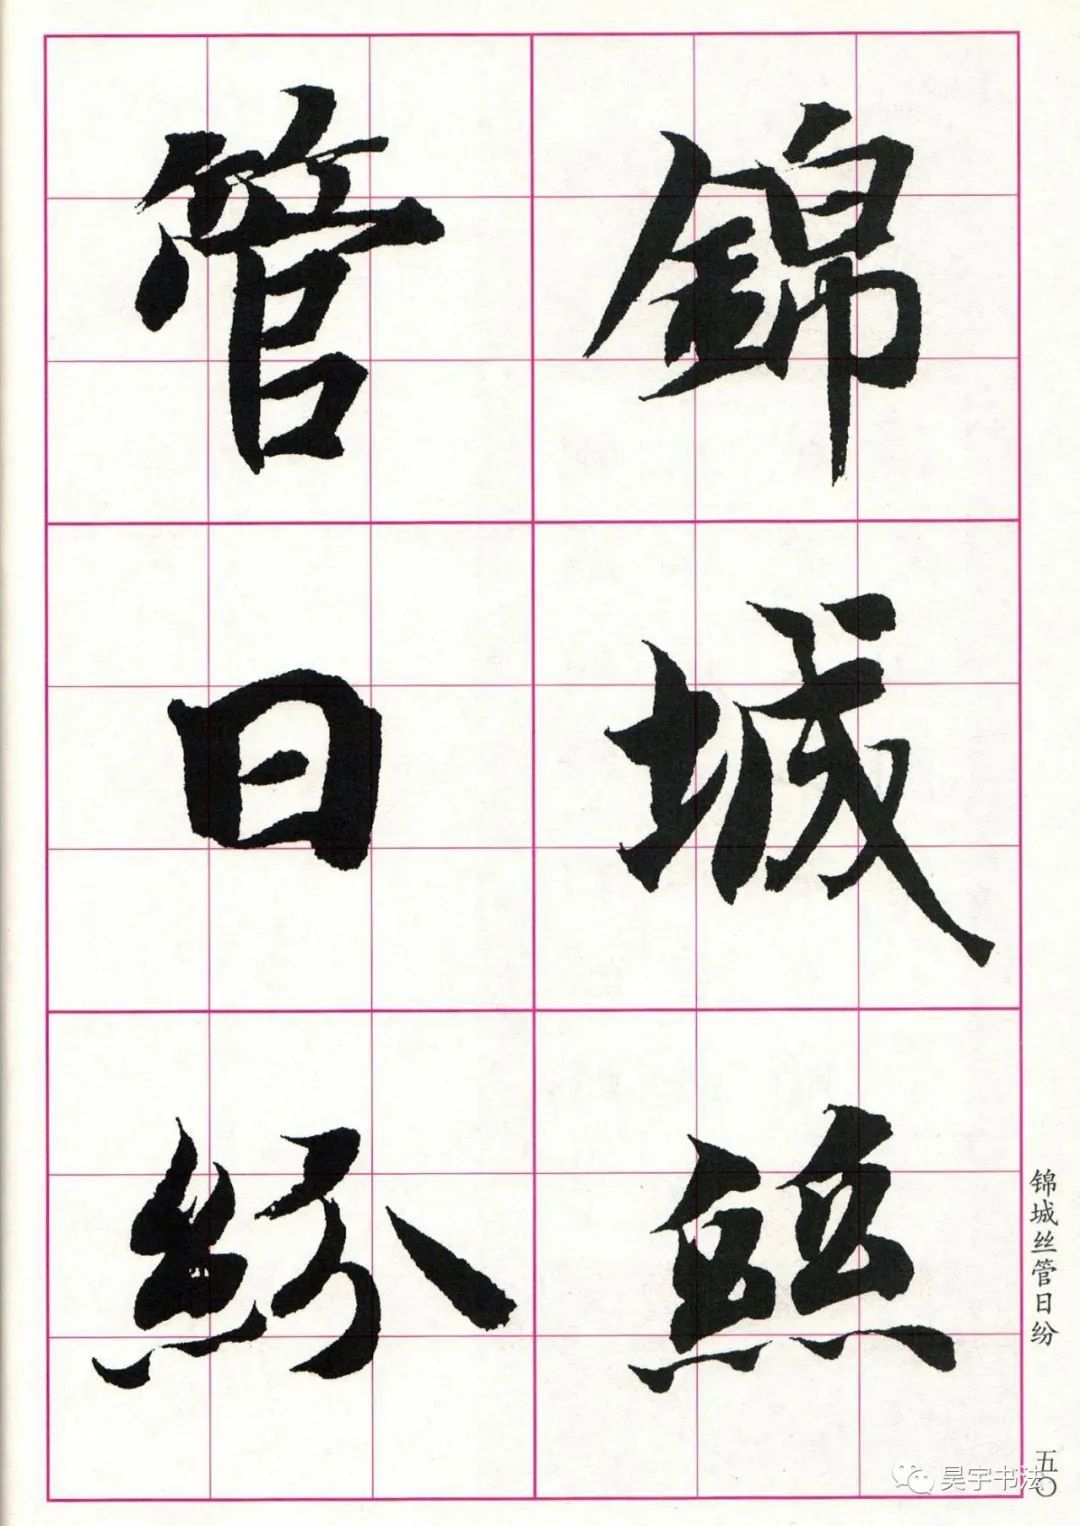 錦城絲
管日紛
锦城丝管日纷
五〇
昊宇书法